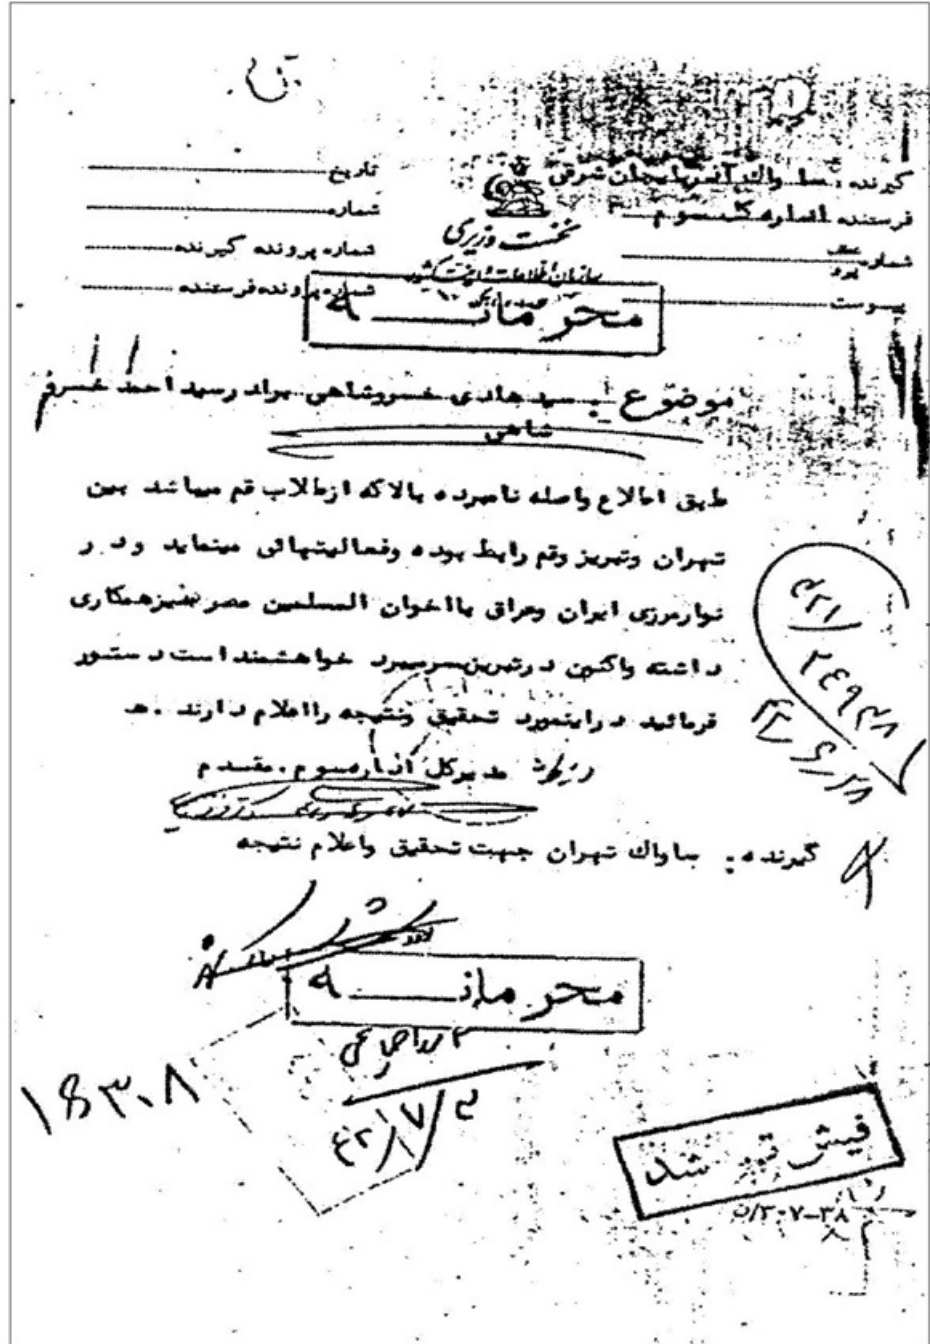 گیرنده: ساواک آذربایجان شرقی
فرستنده اداره کل سوم
شماره
پیوست
نخست وزیری
سازمان اطلاعات و امنیت کشور
تاریخ
شماره
شماره پرونده گیرنده
شماره پرونده فرستنده
محرمانه
موضوع سید هادی خسروشاهی برادر سید احمد خسرو
شاهی
طبق اطلاع واصله نامبرده بالا که از طلاب قم میباشد بین
تهران وتبریز وقم رابط بوده وفعالیتهائی مینماید ودر
نوار مرزی ایران وعراق با اخوان المسلمین مصر نیز همکاری
داشته واکنون در تبریز بسر میبرد خواهشمند است دستور
فرمائید در اینمورد تحقیق ونتیجه را اعلام دارند .هـ
مدیرکل اداره سوم . مقدم
۳۲۱/۲۴۹۳۸
۴۲/۶/۲۸
گیرنده: ساواک تهران جهت تحقیق واعلام نتیجه
محرمانه
۴۲/۷/۳
فیش تهیه شد